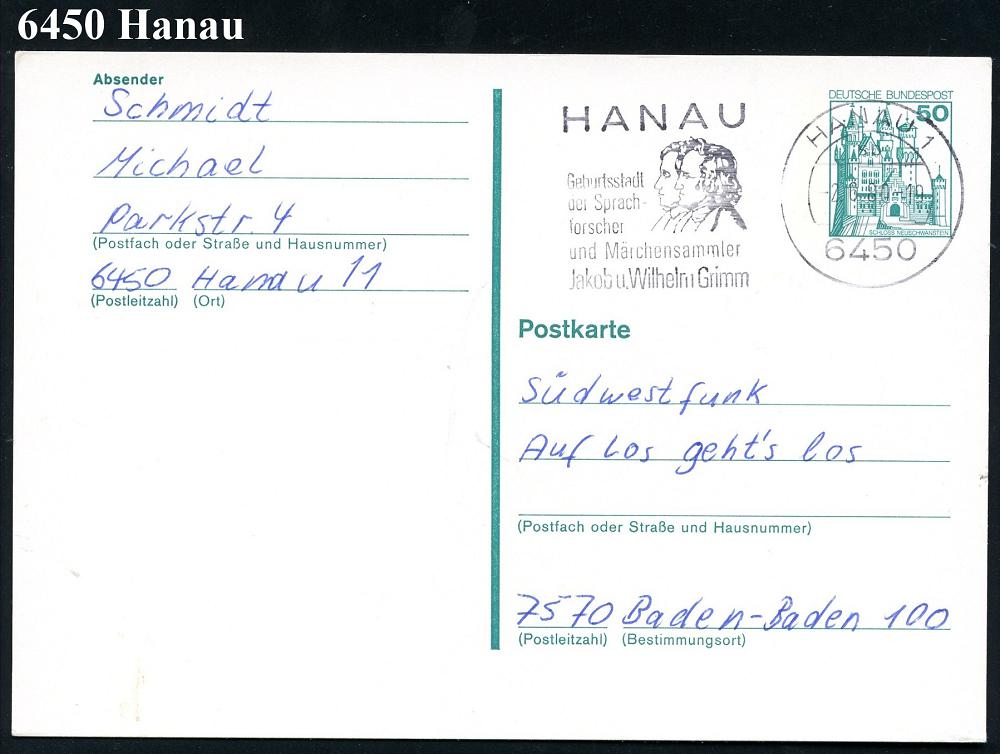 6450 Hanau
Absender
Schmidt
Michael
Parkstr. 4
(Postfach oder Straße und Hausnummer)
6450 Hanau 11
(Postleitzahl) (Ort)
HANAU
Geburtsstadt
der Sprach-
forscher
und Märchensammler
Jakob u. Wilhelm Grimm
DEUTSCHE BUNDESPOST
50
SCHLOSS NEUSCHWANSTEIN
HANAU 1
6450
Postkarte
Südwestfunk
Auf Los geht's los
(Postfach oder Straße und Hausnummer)
7570 Baden-Baden 100
(Postleitzahl) (Bestimmungsort)